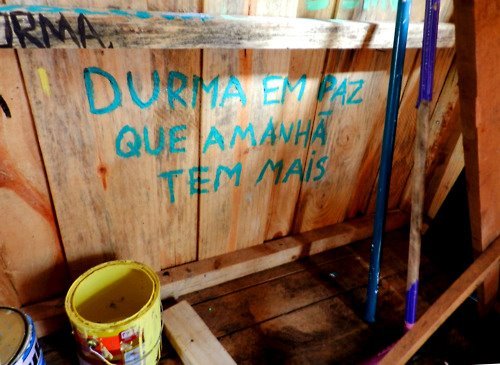 URMA
DURMA EM PAZ
QUE AMANHÃ
TEM MAIS